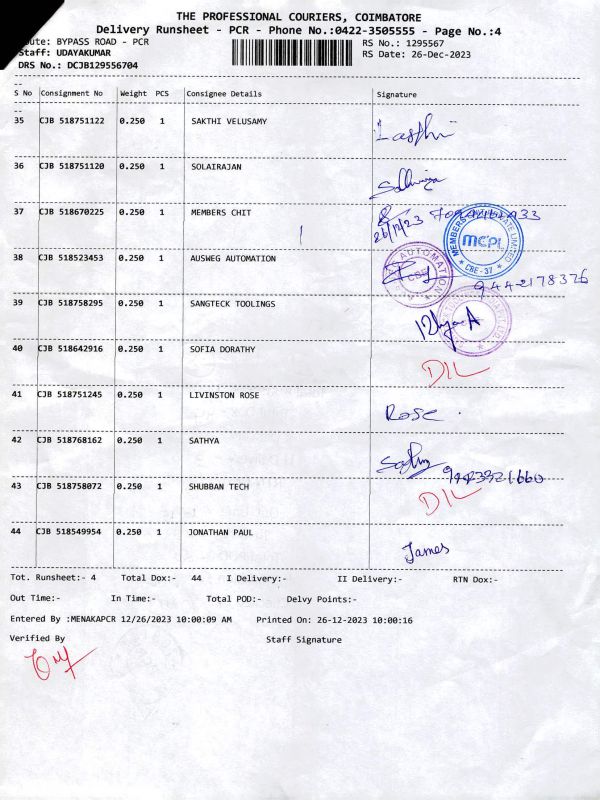 THE PROFESSIONAL COURIERS, COIMBATORE
Delivery Runsheet - PCR - Phone No.:0422-3505555 - Page No.:4
ute: BYPASS ROAD - PCR RS No.: 1295567
Staff: UDAYAKUMAR RS Date: 26-Dec-2023
DRS No.: DCJB129556704
S No Consignment No Weight PCS Consignee Details Signature
35 CJB 518751122 0.250 1 SAKTHI VELUSAMY
36 CJB 518751120 0.250 1 SOLAIRAJAN
37 CJB 518670225 0.250 1 MEMBERS CHIT
26/12/23
MCPL
CBE-37
38 CJB 518523453 0.250 1 AUSWEG AUTOMATION
AUTOMATION
9442178326
39 CJB 518758295 0.250 1 SANGTECK TOOLINGS
40 CJB 518642916 0.250 1 SOFIA DORATHY
DIL
41 CJB 518751245 0.250 1 LIVINSTON ROSE
Rose.
42 CJB 518768162 0.250 1 SATHYA
Sathy
43 CJB 518758072 0.250 1 SHUBBAN TECH
DIL
44 CJB 518549954 0.250 1 JONATHAN PAUL
James
Tot. Runsheet:- 4 Total Dox:- 44 I Delivery:- II Delivery:- RTN Dox:-
Out Time:- In Time:- Total POD:- Delvy Points:-
Entered By :MENAKAPCR 12/26/2023 10:00:09 AM Printed On: 26-12-2023 10:00:16
Verified By Staff Signature